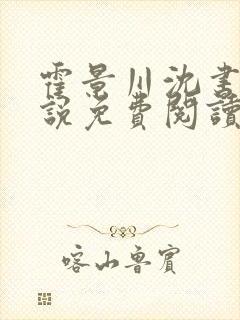 霍景川沈書
說免費閱讀
喀山魯賓